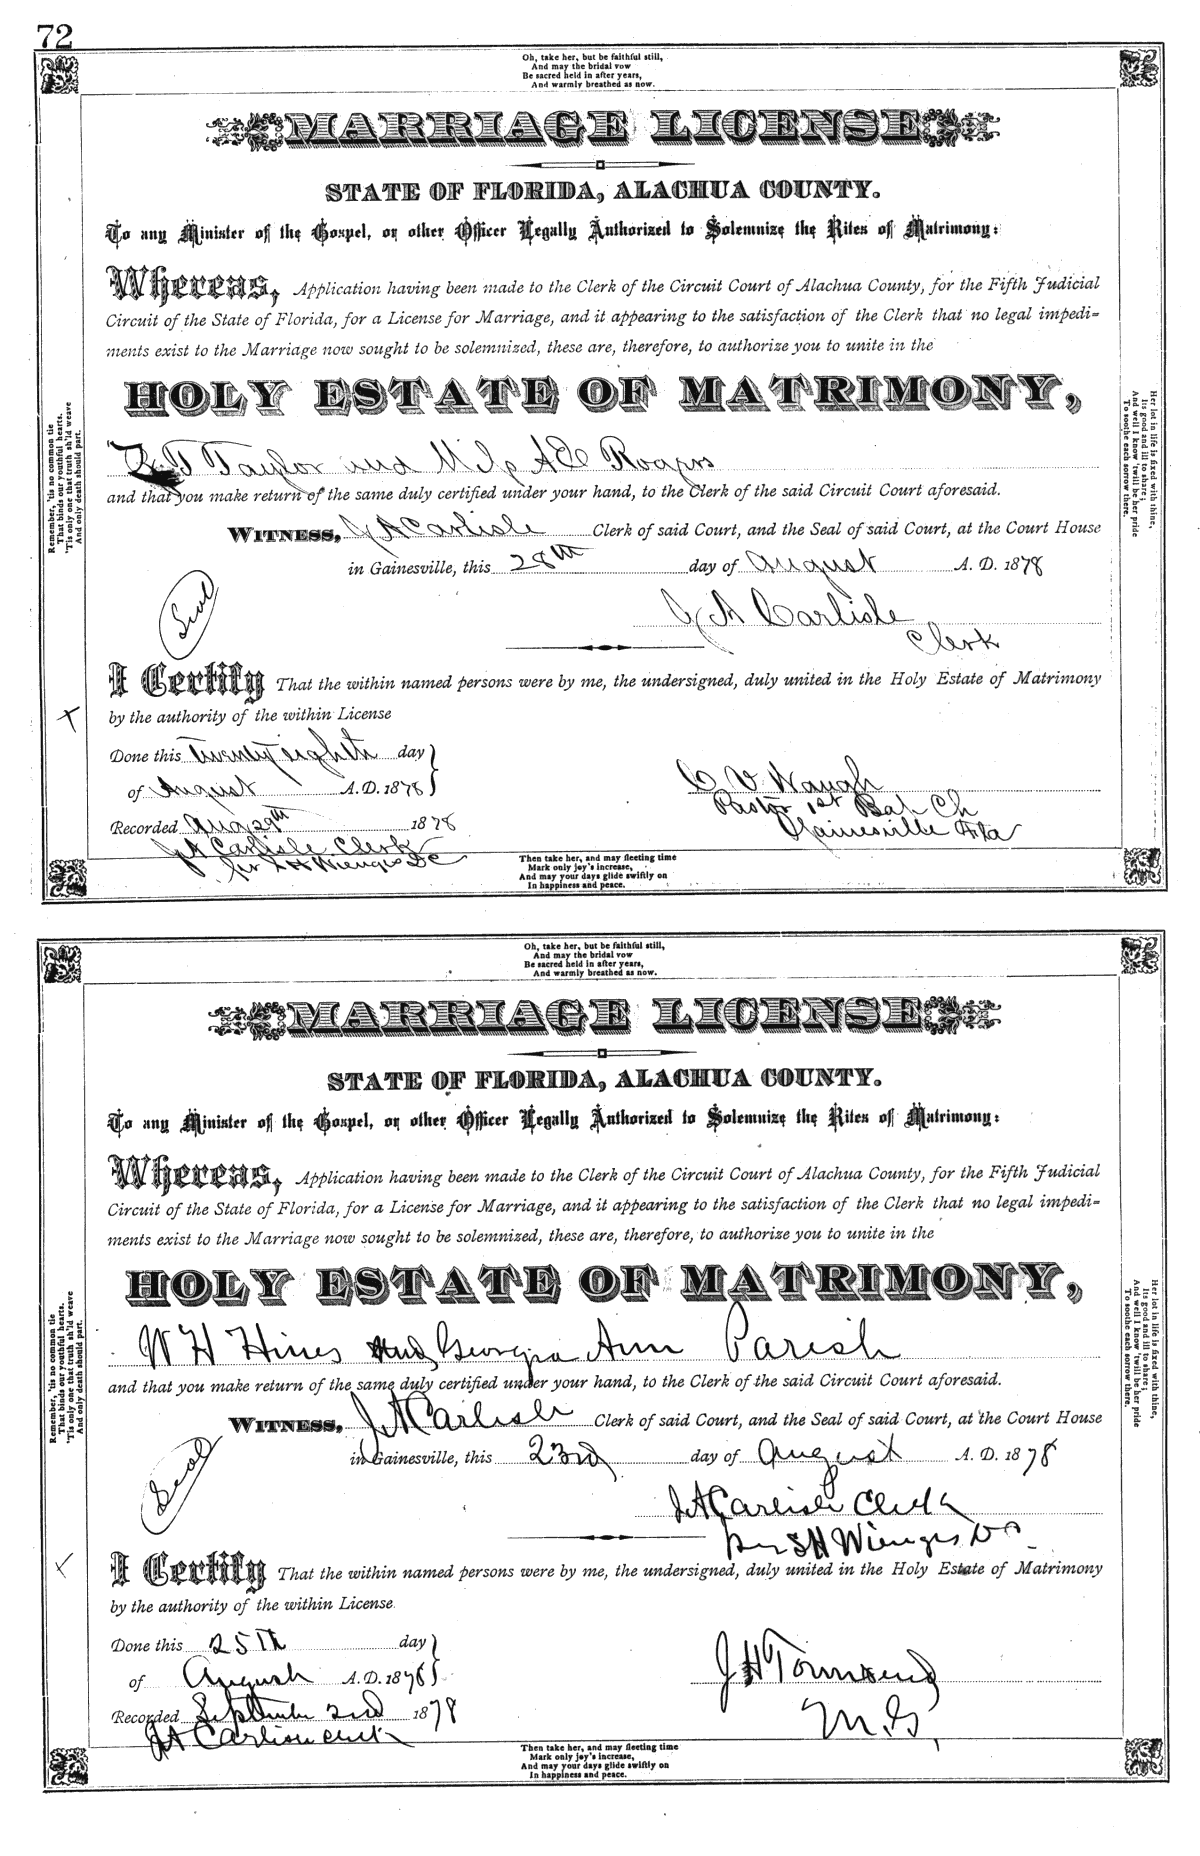 72
Oh, take her, but be faithful still,
And may the bridal vow
Be sacred held in after years,
And warmly breathed as now.
MARRIAGE LICENSE
STATE OF FLORIDA, ALACHUA COUNTY.
To any Minister of the Gospel, or other Officer Legally Authorized to Solemnize the Rites of Matrimony:
Whereas, Application having been made to the Clerk of the Circuit Court of Alachua County, for the Fifth Judicial
Circuit of the State of Florida, for a License for Marriage, and it appearing to the satisfaction of the Clerk that no legal impedi=
ments exist to the Marriage now sought to be solemnized, these are, therefore, to authorize you to unite in the
HOLY ESTATE OF MATRIMONY,
T Taylor and A E Rogers
and that you make return of the same duly certified under your hand, to the Clerk of the said Circuit Court aforesaid.
WITNESS, J A Carlisle Clerk of said Court, and the Seal of said Court, at the Court House
in Gainesville, this 28th day of August A. D. 1878
Seal
J A Carlisle
Clerk
I Certify That the within named persons were by me, the undersigned, duly united in the Holy Estate of Matrimony
by the authority of the within License
Done this Twenty eighth day
of August A.D. 1878
C V Waugh
Pastor 1st Bap Ch
Gainesville Fla
Recorded Aug 29th 1878
J A Carlisle Clerk
for S H Wienges D C
Then take her, and may fleeting time
Mark only joy's increase,
And may your days glide swiftly on
In happiness and peace.
Remember, 'tis no common tie
That binds our youthful hearts.
'Tis only one that truth sh'ld weave
And only death should part.
Her lot in life is fixed with thine,
Its good and ill to share;
And well I know 'twill be her pride
To soothe each sorrow there.
Oh, take her, but be faithful still,
And may the bridal vow
Be sacred held in after years,
And warmly breathed as now.
MARRIAGE LICENSE
STATE OF FLORIDA, ALACHUA COUNTY.
To any Minister of the Gospel, or other Officer Legally Authorized to Solemnize the Rites of Matrimony:
Whereas, Application having been made to the Clerk of the Circuit Court of Alachua County, for the Fifth Judicial
Circuit of the State of Florida, for a License for Marriage, and it appearing to the satisfaction of the Clerk that no legal impedi=
ments exist to the Marriage now sought to be solemnized, these are, therefore, to authorize you to unite in the
HOLY ESTATE OF MATRIMONY,
W H Hines and Georgia Ann Parish
and that you make return of the same duly certified under your hand, to the Clerk of the said Circuit Court aforesaid.
WITNESS, J A Carlisle Clerk of said Court, and the Seal of said Court, at the Court House
in Gainesville, this 23rd day of August A. D. 1878
Seal
J A Carlisle Clerk
per S H Wienges D C
I Certify That the within named persons were by me, the undersigned, duly united in the Holy Estate of Matrimony
by the authority of the within License
Done this 25th day
of August A.D. 1878
J H Townsend
M.G.
Recorded September 2nd 1878
J A Carlisle Clerk
Then take her, and may fleeting time
Mark only joy's increase,
And may your days glide swiftly on
In happiness and peace.
Remember, 'tis no common tie
That binds our youthful hearts.
'Tis only one that truth sh'ld weave
And only death should part.
Her lot in life is fixed with thine,
Its good and ill to share;
And well I know 'twill be her pride
To soothe each sorrow there.